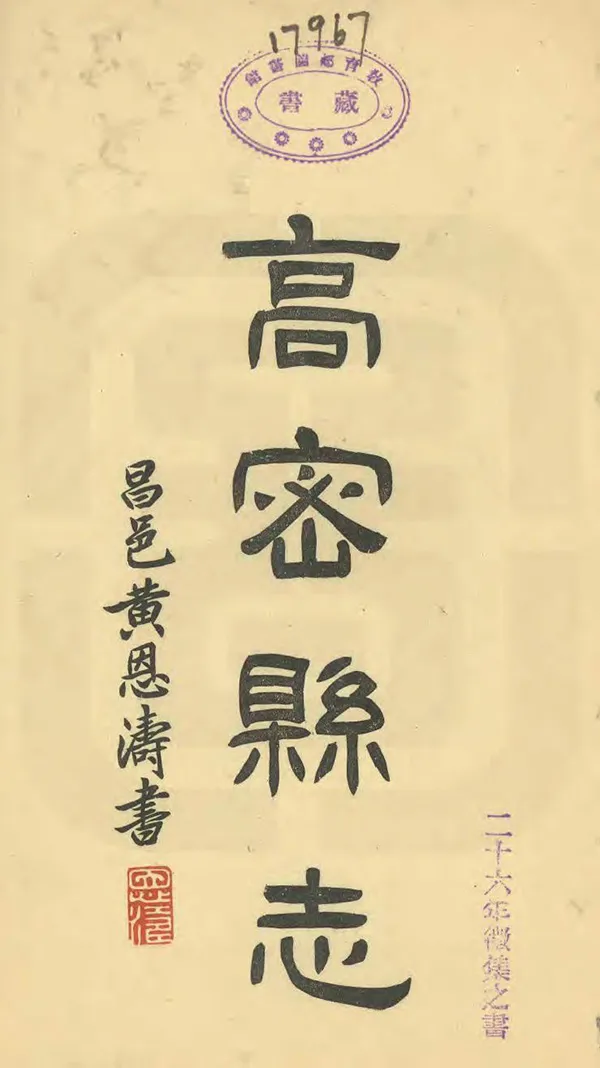 17967
教育部圖書館
藏書
高密縣志
昌邑黃恩濤書
二十六年徵集之書